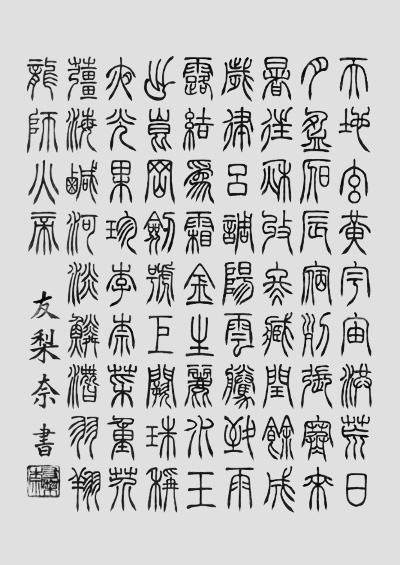 天地玄黃宇宙洪荒日
月盈昃辰宿列張寒來
暑往秋收冬藏閏餘成
歲律呂調陽雲騰致雨
露結爲霜金生麗水玉
出崑岡劍號巨闕珠稱
夜光果珍李柰菜重芥
薑海鹹河淡鱗潛羽翔
龍師火帝
友梨奈書